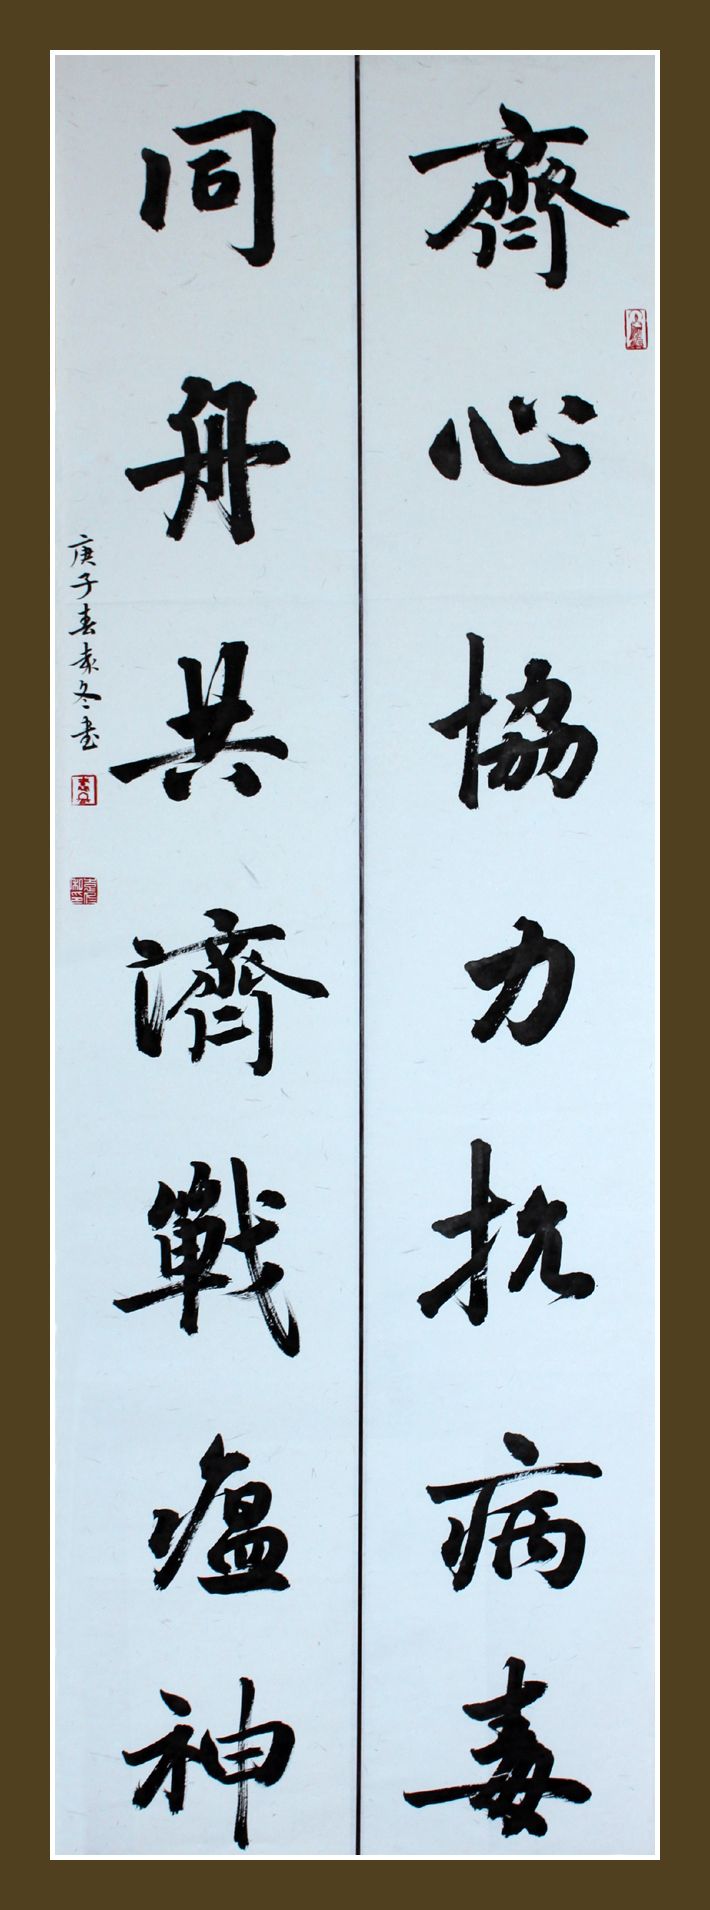 齊心協力抗病毒
同舟共濟戰瘟神
庚子春袁冬书